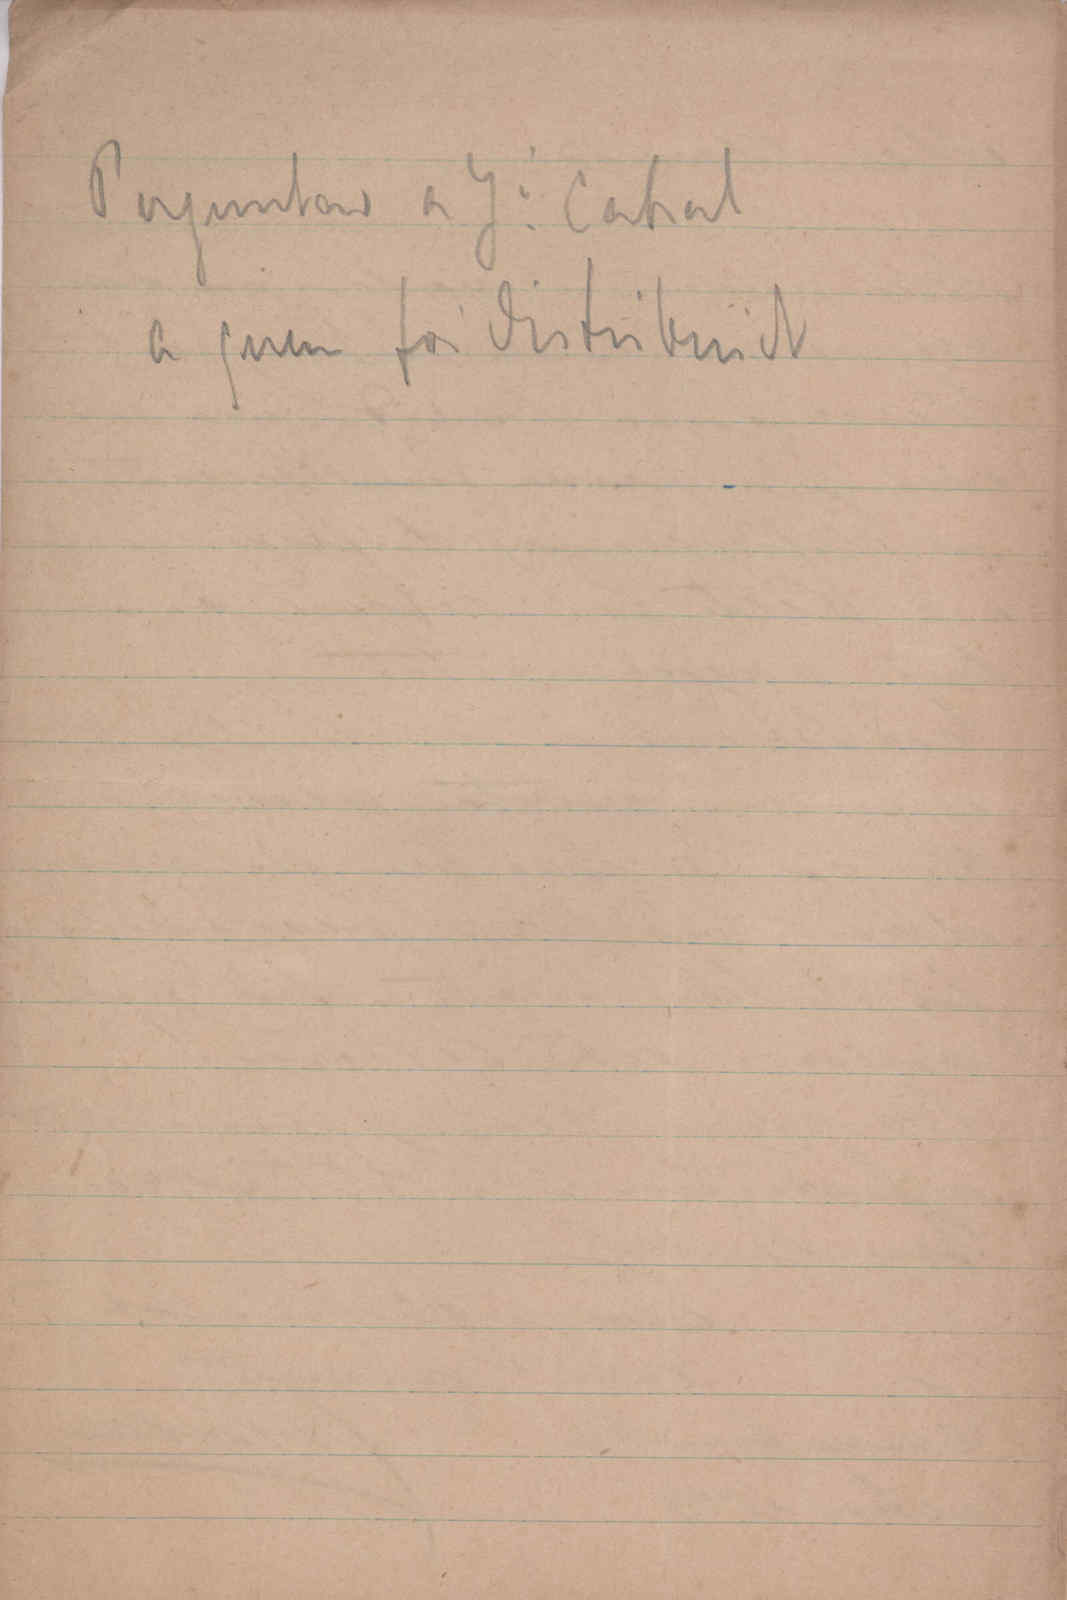 Perguntar a J.: Cabral
a quem foi distribuido